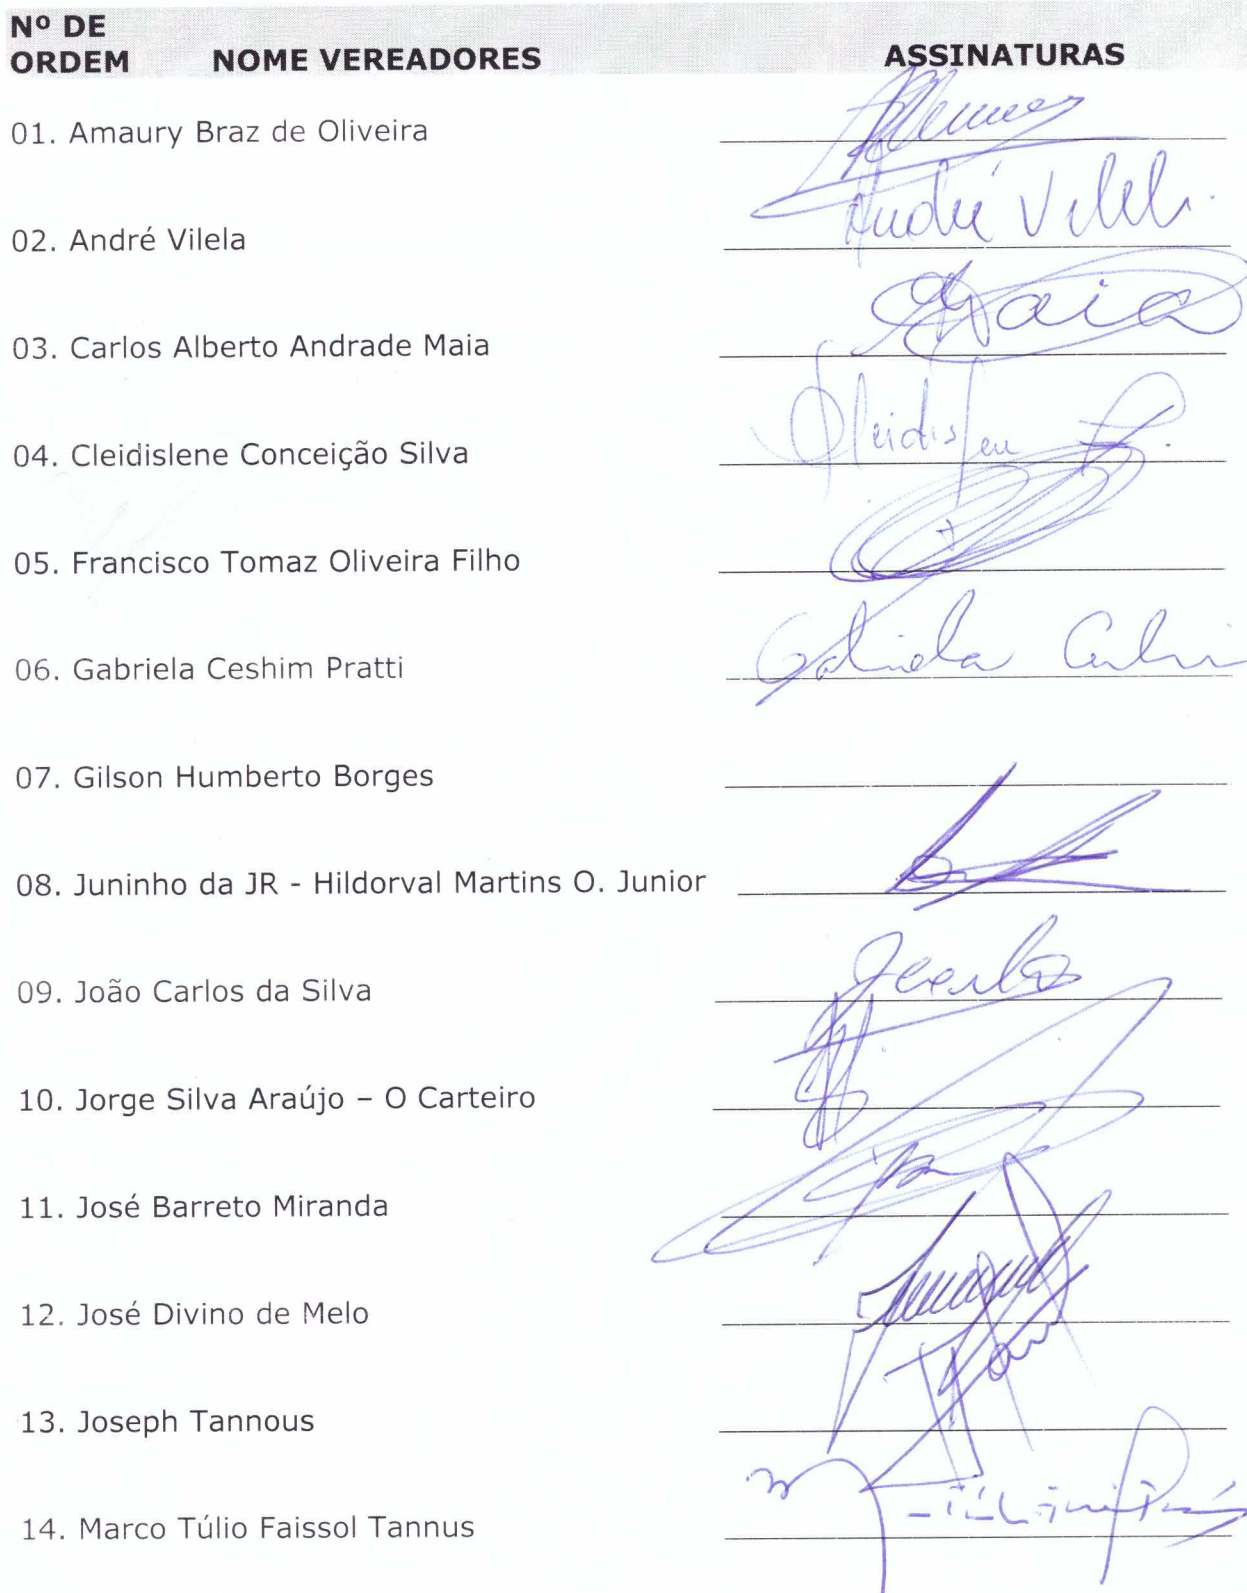 Nº DE
ORDEM NOME VEREADORES ASSINATURAS
01. Amaury Braz de Oliveira
02. André Vilela André Vilela
03. Carlos Alberto Andrade Maia Maia
04. Cleidislene Conceição Silva
05. Francisco Tomaz Oliveira Filho
06. Gabriela Ceshim Pratti Gabriela
07. Gilson Humberto Borges
08. Juninho da JR - Hildorval Martins O. Junior
09. João Carlos da Silva
10. Jorge Silva Araújo – O Carteiro
11. José Barreto Miranda
12. José Divino de Melo
13. Joseph Tannous
14. Marco Túlio Faissol Tannus